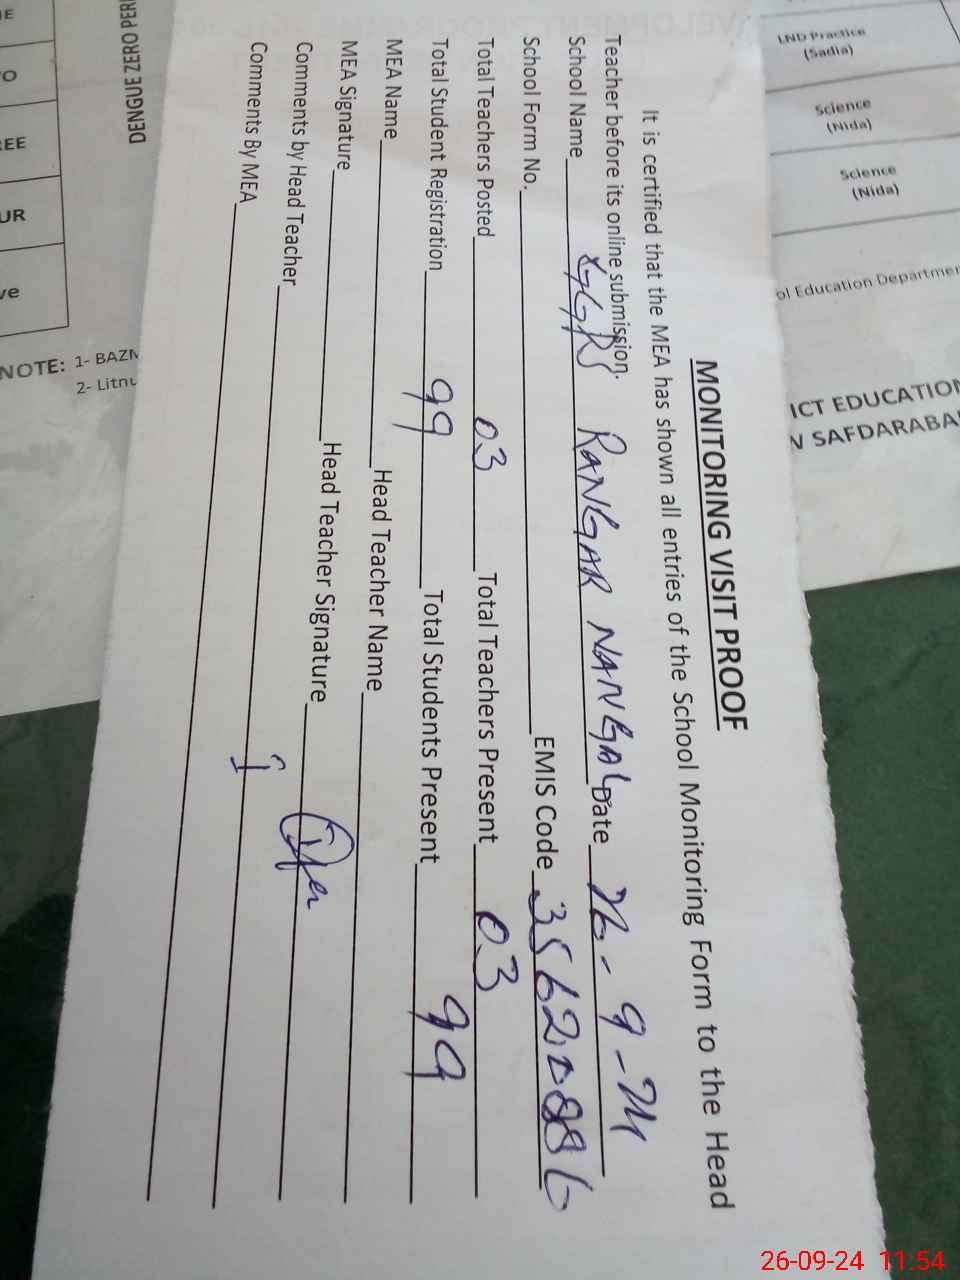 MONITORING VISIT PROOF
It is certified that the MEA has shown all entries of the School Monitoring Form to the Head
Teacher before its online submission.
School Name RANGAR NANGAL Date 26-9-24
School Form No. EMIS Code
Total Teachers Posted 03 Total Teachers Present 03
Total Student Registration 99 Total Students Present 99
MEA Name Head Teacher Name
MEA Signature Head Teacher Signature
Comments by Head Teacher
Comments By MEA
LND Practice
(Sadia)
Science
(Nida)
Science
(Nida)
ol Education Departmen
ICT EDUCATION
SAFDARABA
DENGUE ZERO PERI
EE
UR
ve
NOTE: 1- BAZN
2- Litnu
26-09-24 11:54